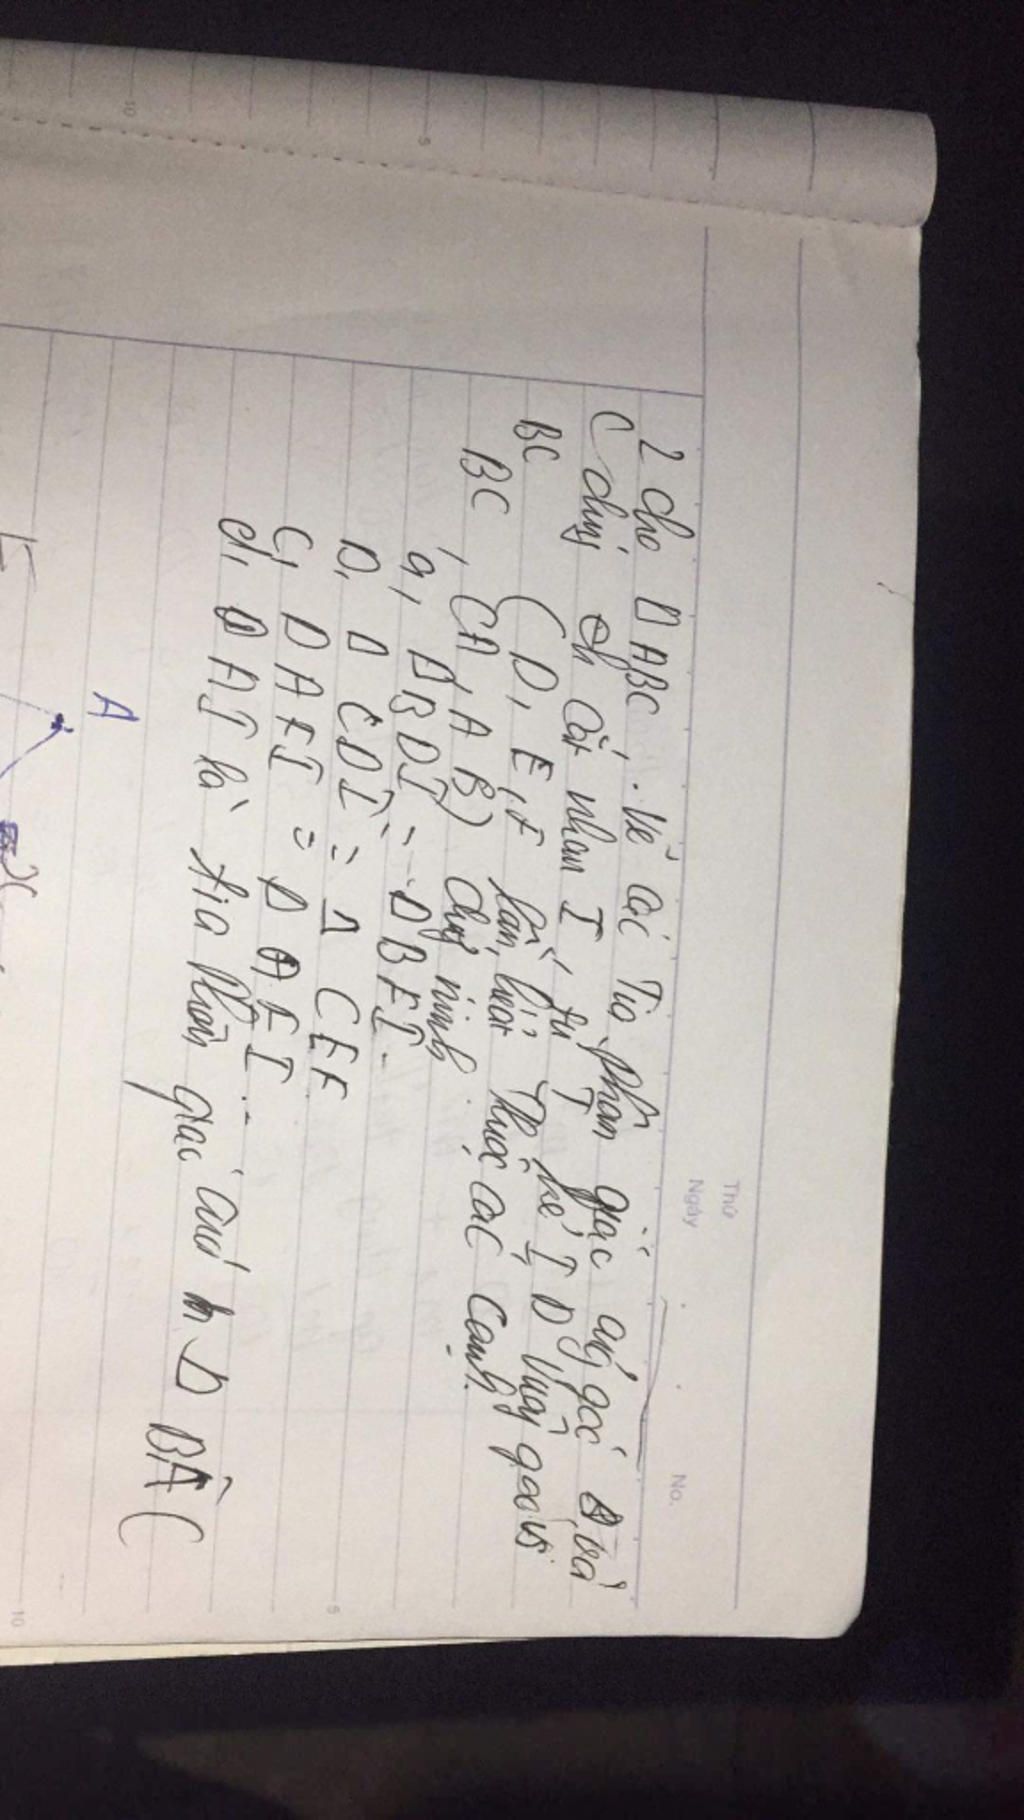 Thứ
Ngày
No.
2 cho Δ ABC . Vẽ các Tia phân giác các góc B và
C chúng cắt nhau I, từ I kẻ ID vuông góc với
BC (D, E, F lần lượt Thuộc các cạnh
BC, CA, AB) chứng minh
a, Δ BDI = Δ BFI.
b, Δ CDI = Δ CEF
C, Δ AFI = Δ AEI
d, AI là tia phân giác BÂC
A
x
E
5
10
5
10